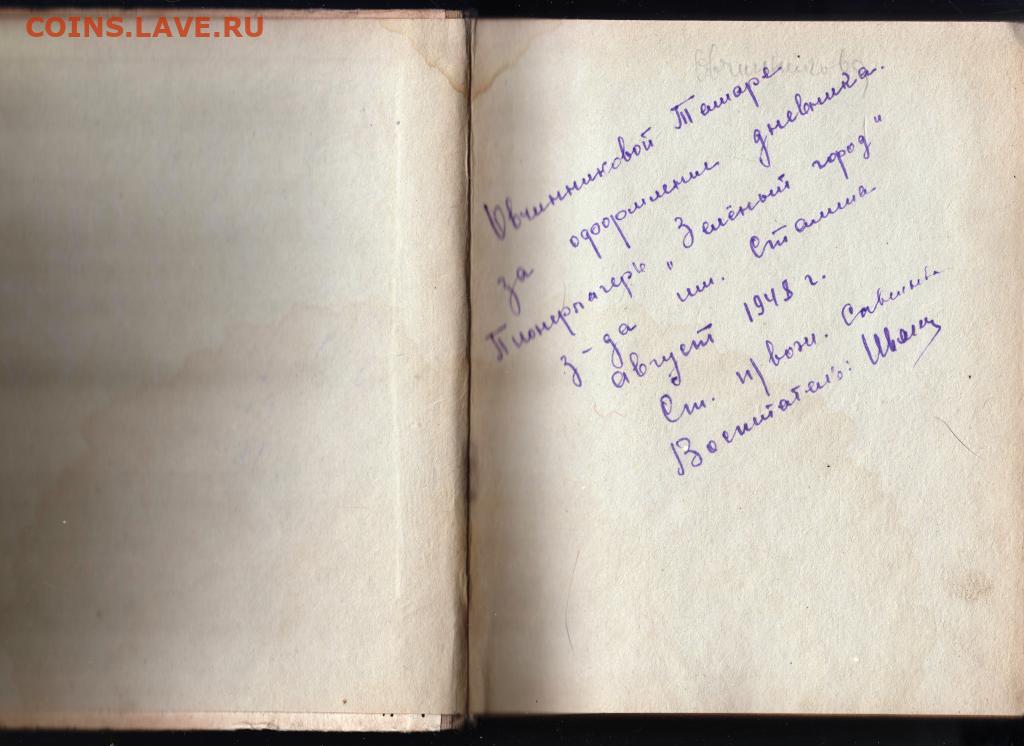 COINS.LAVE.RU
Овчинникова
Овчинниковой Тамаре
за оформление дневника.
Пионерлагерь "Зелёный город"
З-да им. Сталина
Август 1948 г.
Ст. п/вож.
Воспитатель: